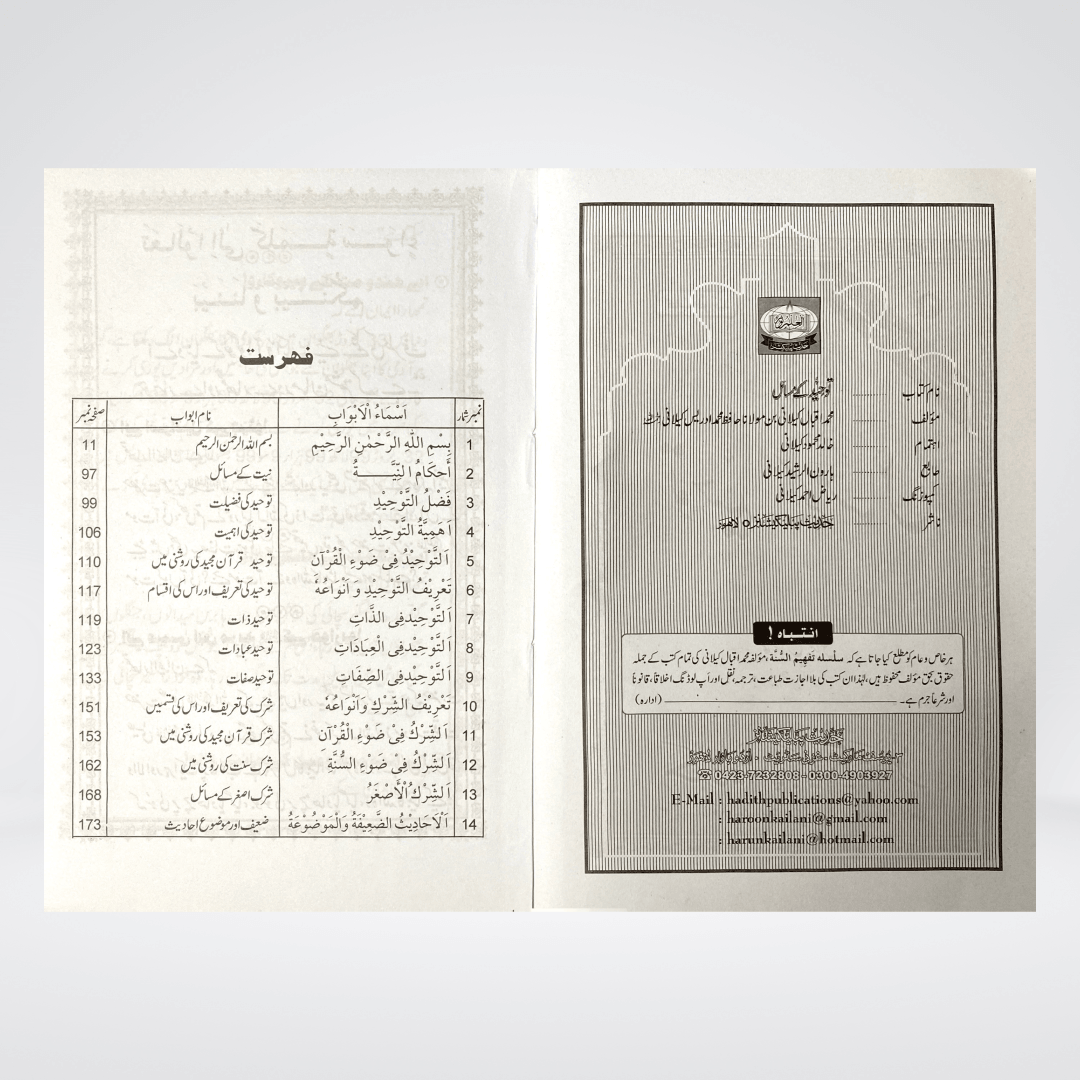 نام کتاب ............ توحید کے مسائل
مؤلف ............ محمد اقبال کیلانی بن مولانا حافظ محمد ادریس کیلانی
اہتمام ............ خالد محمود کیلانی
طابع ............ ہارون الرشید کیلانی
کمپوزنگ ............ ریاض احمد کیلانی
ناشر ............ حدیث پبلیکیشنز لاہور
انتباہ !
ہر خاص و عام کو مطلع کیا جاتا ہے کہ سلسلہ تفہیمُ السُّنۃ، مؤلفہ محمد اقبال کیلانی کی تمام کتب کے جملہ
حقوق بحق مؤلف محفوظ ہیں، لہٰذا ان کتب کی بلا اجازت طباعت، ترجمہ، نقل اور اَپ لوڈنگ اخلاقاً، قانوناً
اور شرعاً جرم ہے۔ (ادارہ)
حدیث پبلیکیشنز
☎ 0423-7232808 - 0300-4903927
E-Mail : hadithpublications@yahoo.com
: haroonkailani@gmail.com
: harunkailani@hotmail.com
فہرست
نمبر شمار اَسْمَاءُ الْاَبْوَابِ نام ابواب صفحہ نمبر
1 بِسْمِ اللّٰهِ الرَّحْمٰنِ الرَّحِيْمِ بسم اللہ الرحمٰن الرحیم 11
2 أَحْكَامُ النِّيَّـــــةُ نیت کے مسائل 97
3 فَضْلُ التَّوْحِيْدِ توحید کی فضیلت 99
4 اَهَمِيَّةُ التَّوْحِيْدِ توحید کی اہمیت 106
5 اَلتَّوْحِيْدُ فِيْ ضَوْءِ الْقُرْآنِ توحید قرآن مجید کی روشنی میں 110
6 تَعْرِيْفُ التَّوْحِيْدِ وَ اَنْوَاعُهُ توحید کی تعریف اور اس کی اقسام 117
7 اَلتَّوْحِيْدفِى الذَّاتِ توحید ذات 119
8 اَلتَّوْحِيْدفِى الْعِبَادَاتِ توحید عبادات 123
9 اَلتَّوْحِيْدفِى الصِّفَاتِ توحید صفات 133
10 تَعْرِيْفُ الشِّرْكِ وَاَنْوَاعُهُ شرک کی تعریف اور اس کی قسمیں 151
11 اَلشِّرْكُ فِىْ ضَوْءِ الْقُرْآنِ شرک قرآن مجید کی روشنی میں 153
12 اَلشِّرْكُ فِىْ ضَوْءِ السُّنَّةِ شرک سنت کی روشنی میں 162
13 اَلشِّرْكُ الْاَصْغَرُ شرک اصغر کے مسائل 168
14 اَلْاَحَادِيْثُ الضَّعِيْفَةُ وَالْمَوْضُوْعَةُ ضعیف اور موضوع احادیث 173